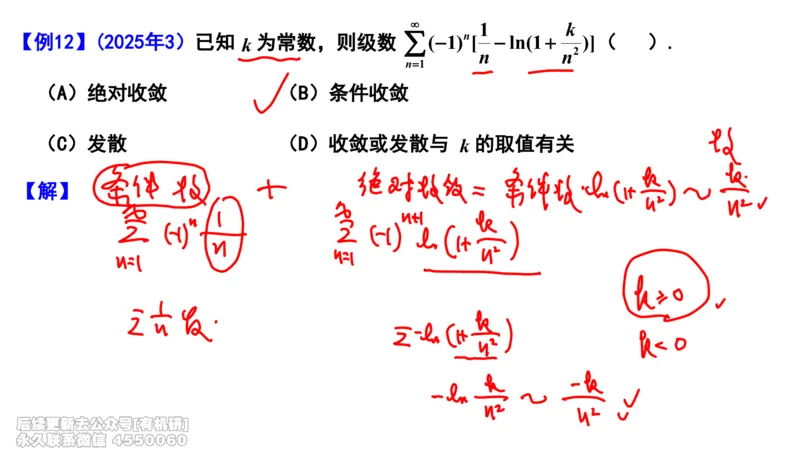 【例12】(2025年3) 已知 k 为常数，则级数 \sum_{n=1}^{∞}(-1)^n[\frac{1}{n}-\ln(1+\frac{k}{n^2})] ( ).
(A) 绝对收敛 (B) 条件收敛
(C) 发散 (D) 收敛或发散与 k 的取值有关
【解】 条件收 + 绝对收敛 = 条件收
\sum_{n=1}^{∞} (-1)^n \frac{1}{n}
\sum_{n=1}^{∞} (-1)^{n+1} \ln(1+\frac{k}{n^2})
\ln(1+\frac{k}{n^2}) ~ \frac{k}{n^2}
k≥0
k<0
Σ -\ln(1+\frac{k}{n^2})
-\ln \frac{k}{n^2} ~ \frac{-k}{n^2}
后续更新去公众号[有机研]
永久联系微信 4550060